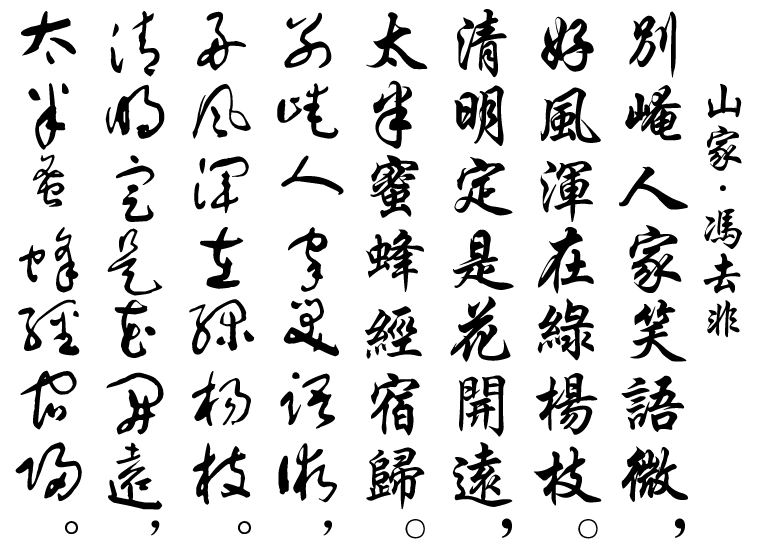 山家·馮去非
別崦人家笑語微，
好風渾在綠楊枝。
清明定是花開遠，
太半蜜蜂經宿歸。
別崦人家笑語微，
好風渾在綠楊枝。
清明定是花開遠，
太半蜜蜂經宿歸。